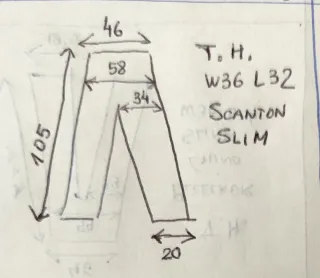 46
58
34
105
20
T. H.
W36 L32
SCANTON
SLIM